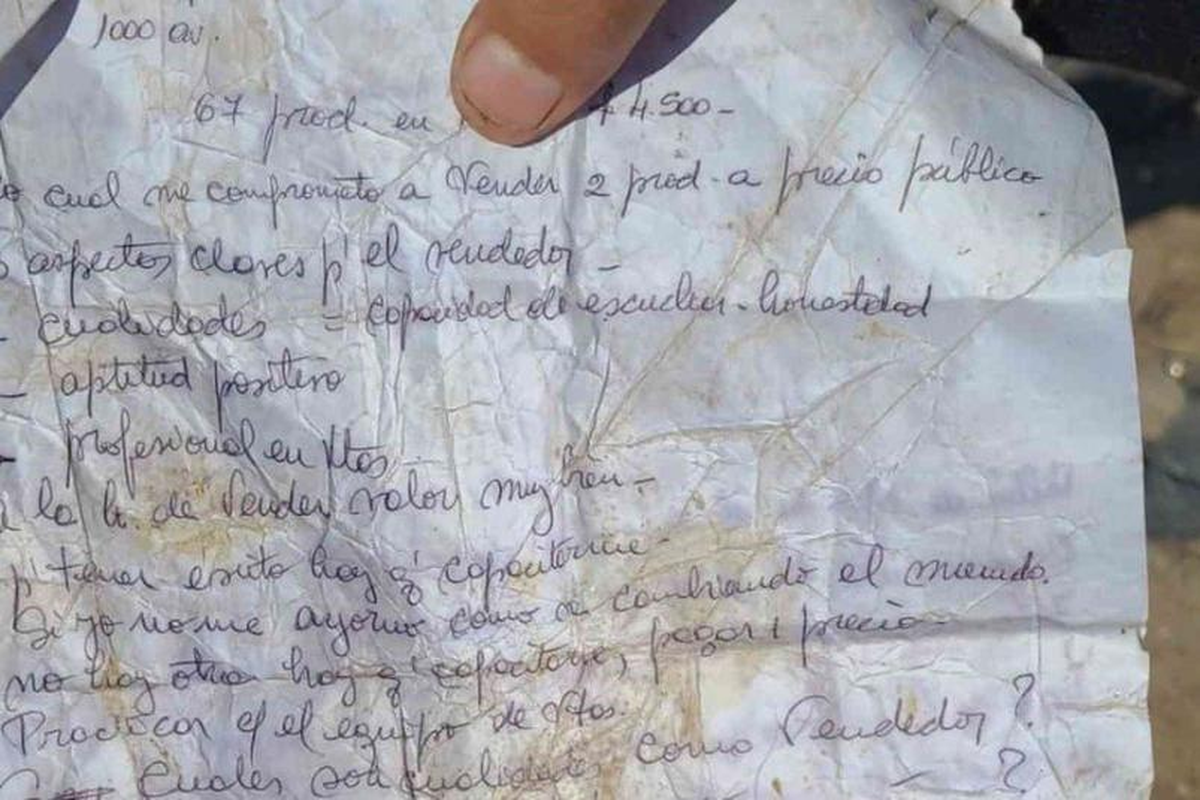 1000 av.
67 prod. en $ 4.500-
lo cual me comprometo a Vender 2 prod. a precio público
aspectos claves p' el vendedor -
- cualidades = capacidad de escuchar - honestidad
- aptitud positivo
- profesional en Vtas
la h. de Vender valor muy bien -
p' tener exito hay q' capacitarme -
Si yo no me ayorno como va cambiando el mundo.
no hay otra hay q' capacitarse, pagar 1 precio -
Practicar c/ el equipo de Vtas.
Cuales son cualidades como Vendedor ?
?